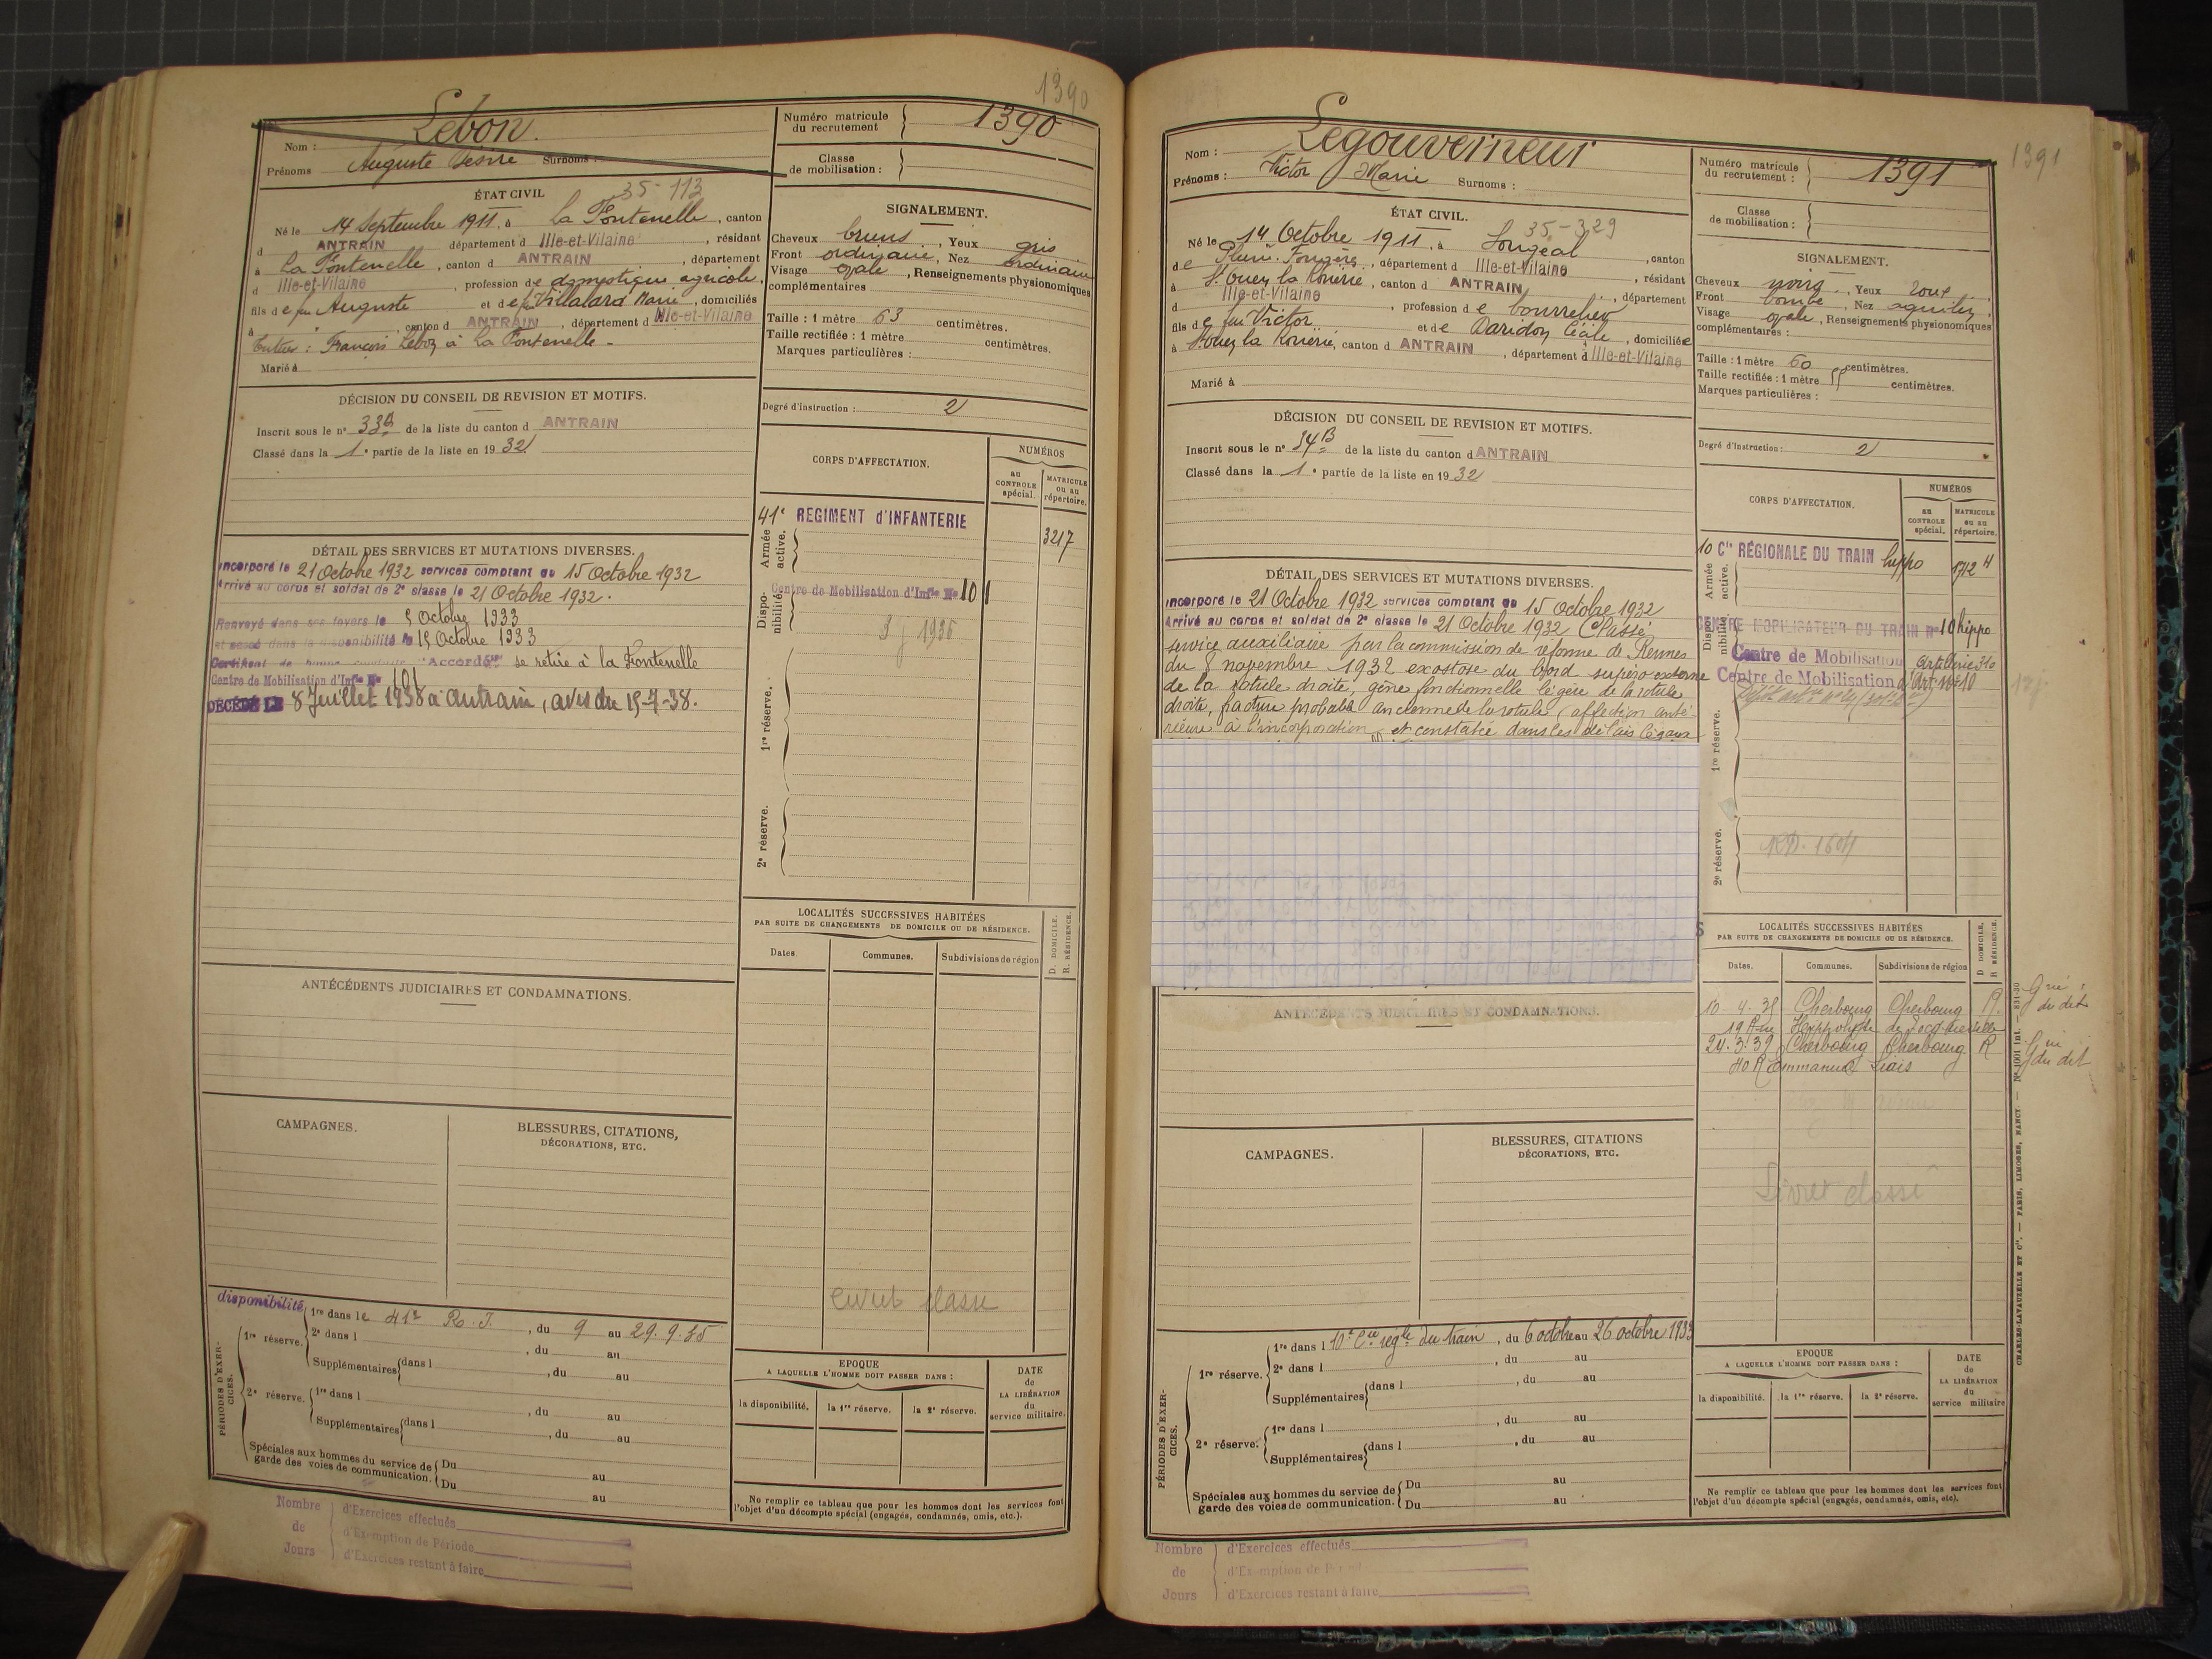 1390
Nom : Lebon.
Prénoms Auguste Desiré Surnoms :
Numéro matricule du recrutement 1390
Classe de mobilisation :
ÉTAT CIVIL
35-113
Né le 14 Septembre 1911, à La Fontenelle, canton
d ANTRAIN département d Ille-et-Vilaine, résidant
à La Fontenelle, canton d ANTRAIN, département
d Ille-et-Vilaine, profession de domestique agricole,
fils de feu Auguste et de feu Villalard Marie, domiciliés
à , canton d ANTRAIN, département d Ille-et-Vilaine
Tuteur : François Lebon à La Fontenelle -
Marié à
SIGNALEMENT.
Cheveux bruns, Yeux gris
Front ordinaire, Nez ordinaire
Visage ovale, Renseignements physionomiques
complémentaires
Taille : 1 mètre 63 centimètres.
Taille rectifiée : 1 mètre centimètres.
Marques particulières :
Degré d'instruction : 2
DÉCISION DU CONSEIL DE REVISION ET MOTIFS.
Inscrit sous le n° 33 de la liste du canton d ANTRAIN
Classé dans la 1e partie de la liste en 1932
CORPS D'AFFECTATION.
NUMÉROS
au CONTROLE spécial.
MATRICULE ou au répertoire.
Armée active.
41e REGIMENT d'INFANTERIE
3217
Disponibilité
Centre de Mobilisation d'Infie No 101
3 j 1936
1re réserve.
2e réserve.
DÉTAIL DES SERVICES ET MUTATIONS DIVERSES.
Incorporé le 21 Octobre 1932 services comptant du 15 Octobre 1932
Arrivé au corps et soldat de 2e classe le 21 Octobre 1932.
Renvoyé dans ses foyers le 9 Octobre 1933
et passé dans la disponibilité le 15 Octobre 1933
Certificat de bonne conduite "Accordé" se retire à la Fontenelle
Centre de Mobilisation d'Infie No 101
DÉCÉDÉ LE 8 Juillet 1938 à Antrain, avis du 15-7-38.
LOCALITÉS SUCCESSIVES HABITÉES
PAR SUITE DE CHANGEMENTS DE DOMICILE OU DE RÉSIDENCE.
Dates.
Communes.
Subdivisions de région
D. DOMICILE.
R. RÉSIDENCE.
ANTÉCÉDENTS JUDICIAIRES ET CONDAMNATIONS.
CAMPAGNES.
BLESSURES, CITATIONS,
DÉCORATIONS, ETC.
Livret classé
PÉRIODES D'EXERCICES.
disponibilité
1re réserve. 1re dans le 41e R.I., du 9 au 29.9.35
2e dans l , du au
Supplémentaires dans l , du au
2e réserve. 1re dans l , du au
Supplémentaires dans l , du au
Spéciales aux hommes du service de garde des voies de communication. Du au
Du au
EPOQUE
A LAQUELLE L'HOMME DOIT PASSER DANS :
la disponibilité.
la 1re réserve.
la 2e réserve.
DATE
de
LA LIBÉRATION
du
service militaire.
Ne remplir ce tableau que pour les hommes dont les services font
l'objet d'un décompte spécial (engagés, condamnés, omis, etc.).
Nombre de Jours
d'Exercices effectués
d'Exemption de Période
d'Exercices restant à faire
1391
Nom : Legouverneur
Prénoms : Victor Marie Surnoms :
Numéro matricule du recrutement : 1391
Classe de mobilisation :
ÉTAT CIVIL.
35-329
Né le 14 Octobre 1911, à Sougeal, canton
de Pleine-Fougères, département d Ille-et-Vilaine, résidant
à St Ouen la Rouërie, canton d ANTRAIN, département
d Ille-et-Vilaine, profession de bourrelier
fils de feu Victor et de Daridon Cécile, domiciliée
à St Ouen la Rouërie, canton d ANTRAIN, département d Ille-et-Vilaine
Marié à
SIGNALEMENT.
Cheveux noirs, Yeux roux
Front bombé, Nez aquilin,
Visage ovale, Renseignements physionomiques
complémentaires :
Taille : 1 mètre 60 centimètres.
Taille rectifiée : 1 mètre centimètres.
Marques particulières :
Degré d'instruction : 2
DÉCISION DU CONSEIL DE REVISION ET MOTIFS.
Inscrit sous le n° 54B de la liste du canton d ANTRAIN
Classé dans la 1e partie de la liste en 1932
CORPS D'AFFECTATION.
NUMÉROS
au CONTROLE spécial.
MATRICULE ou au répertoire.
Armée active.
10 Cie RÉGIONALE DU TRAIN hippo
1712 H
Disponibilité
CENTRE MOBILISATEUR DU TRAIN No 10 hippo
Centre de Mobilisation Artillerie 310
Centre de Mobilisation d'Art. No 10
1re réserve.
2e réserve.
DÉTAIL DES SERVICES ET MUTATIONS DIVERSES.
Incorporé le 21 Octobre 1932 services comptant du 15 Octobre 1932
Arrivé au corps et soldat de 2e classe le 21 Octobre 1932 Classé
service auxiliaire par la commission de réforme de Rennes
du 8 novembre 1932 exostose du bord supéro externe
de la rotule droite, gêne fonctionnelle légère de la rotule
droite, fracture probable ancienne de la rotule (affection anté-
rieure à l'incorporation et constatée dans les délais légaux
LOCALITÉS SUCCESSIVES HABITÉES
PAR SUITE DE CHANGEMENTS DE DOMICILE OU DE RÉSIDENCE.
Dates.
Communes.
Subdivisions de région
D DOMICILE,
R RÉSIDENCE.
10-4-35 Cherbourg Cherbourg R.
19 Rue Hippolyte de Tocqueville
24.3.39 Cherbourg Cherbourg R
40 R Emmanuel Liais
Gnie du dit
Gnie du dit
Livret classé
ANTÉCÉDENTS JUDICIAIRES ET CONDAMNATIONS.
CAMPAGNES.
BLESSURES, CITATIONS
DÉCORATIONS, ETC.
PÉRIODES D'EXERCICES.
1re réserve. 1re dans l 10e Cie régle du train, du 6 octobre au 26 octobre 1935
2e dans l , du au
Supplémentaires dans l , du au
2e réserve. 1re dans l , du au
Supplémentaires dans l , du au
Spéciales aux hommes du service de garde des voies de communication. Du au
Du au
EPOQUE
A LAQUELLE L'HOMME DOIT PASSER DANS :
la disponibilité.
la 1re réserve.
la 2e réserve.
DATE
de
LA LIBÉRATION
du
service militaire
Ne remplir ce tableau que pour les hommes dont les services font
l'objet d'un décompte spécial (engagés, condamnés, omis, etc.).
CHARLES-LAVAUZELLE ET Cie. — PARIS, LIMOGES, NANCY. —
Nombre de Jours
d'Exercices effectués
d'Exemption de Période
d'Exercices restant à faire